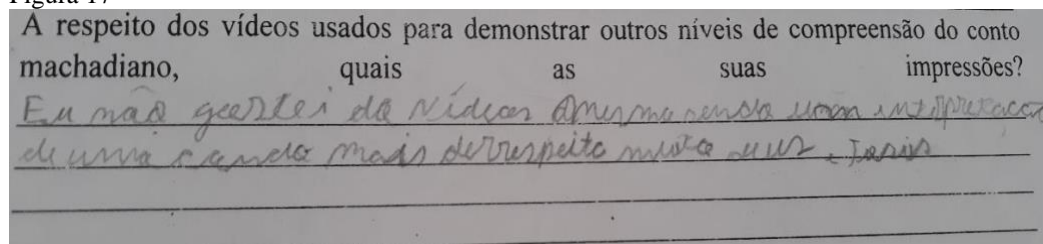 Figura 17
A respeito dos vídeos usados para demonstrar outros níveis de compreensão do conto
machadiano, quais as suas impressões?
Eu não gostei do vídeos mesmo sendo uma
de uma mais desrespeito Deus e Jesus